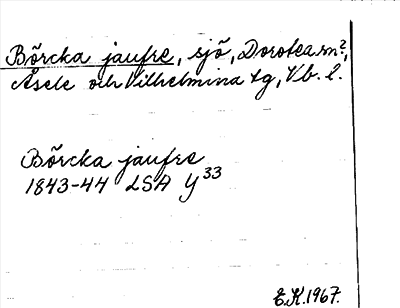 Bõrcka jaufre, sjö, Dorotea sn?,
Åsele och Vilhelmina tg, Vb. l.
Bõrcka jaufre
1843-44 LSA Y 33
E.K. 1967.